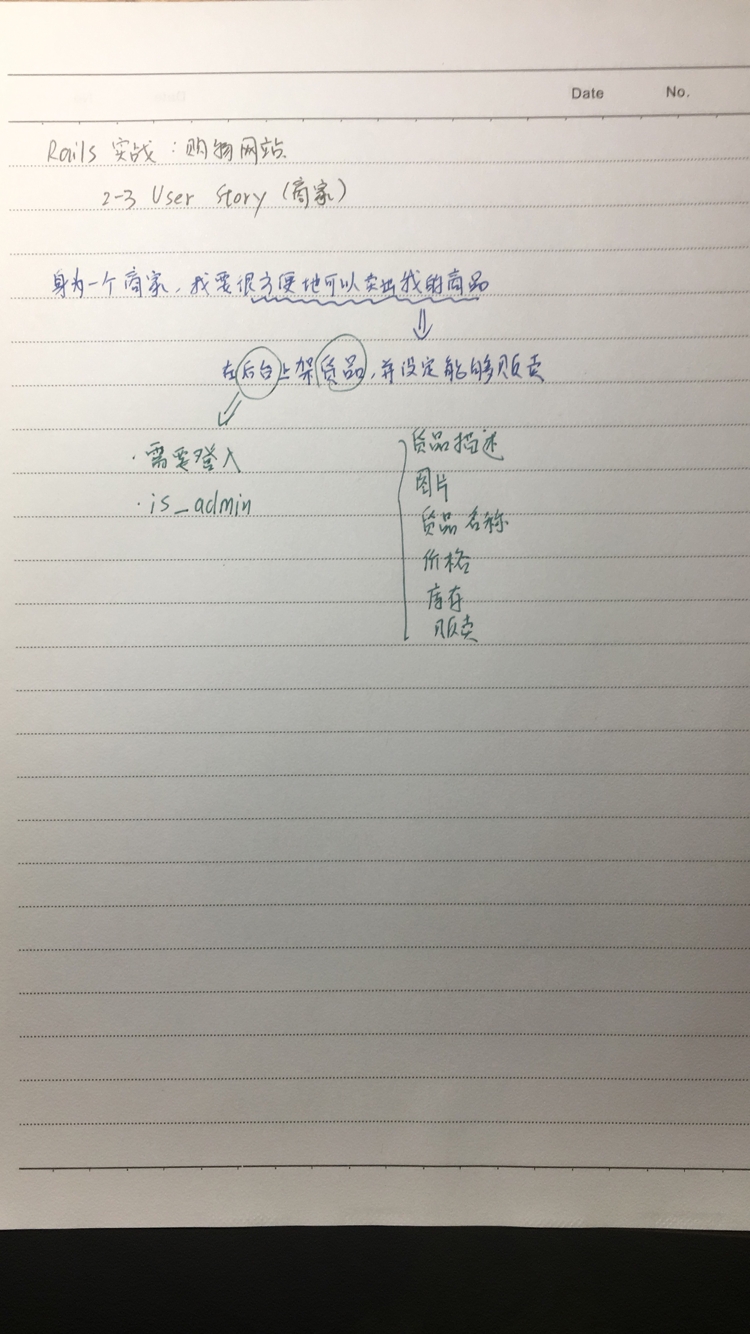 Date No.
Rails 实战：购物网站
2-3 User Story (商家)
身为一个商家，我要很方便地可以卖出我的商品
在后台上架货品，并设定能够贩卖
·需要登入
·is_admin
货品描述
图片
货品名称
价格
库存
贩卖